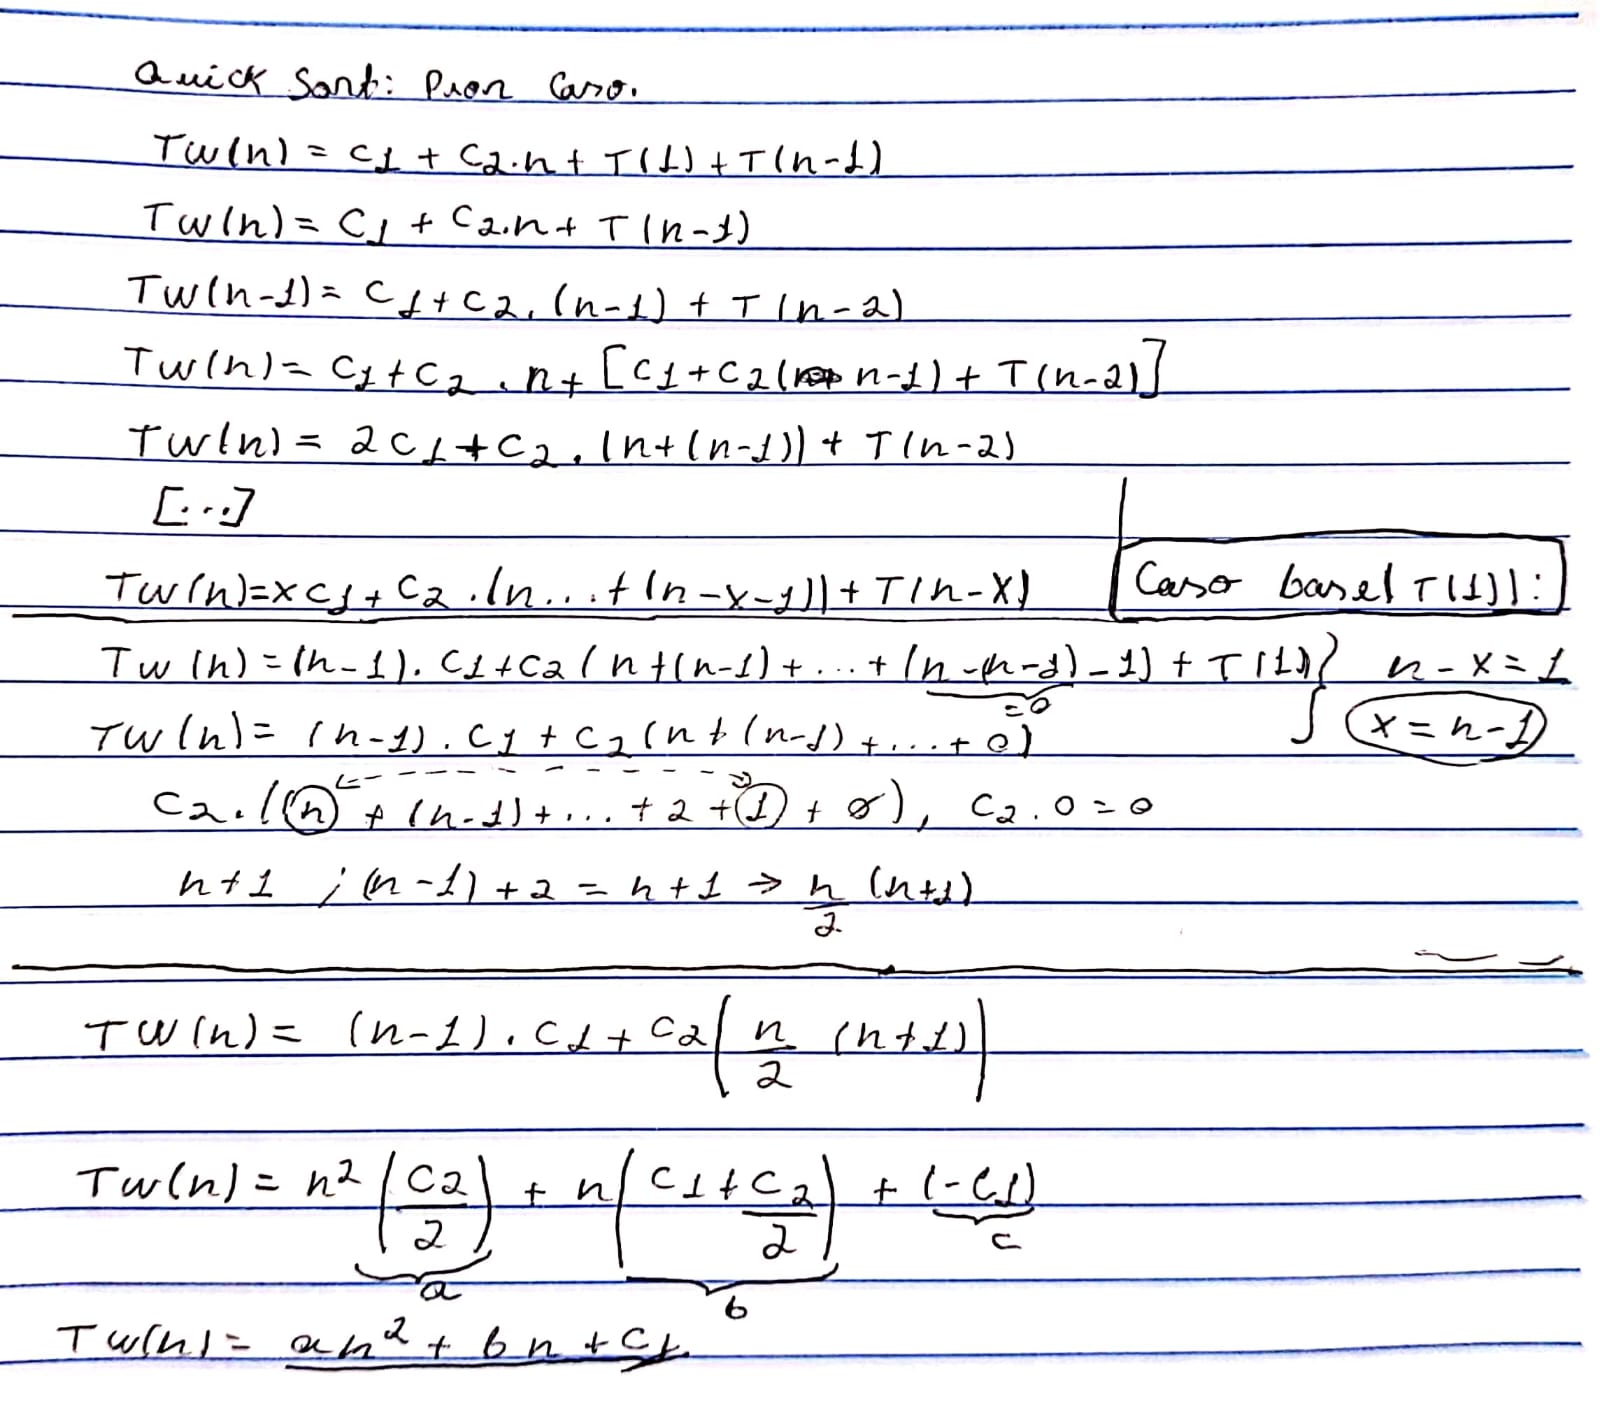 Quick Sort: Pior Caso.
Tw(n) = c1 + c2.n + T(1) + T(n-1)
Tw(n) = c1 + c2.n + T(n-1)
Tw(n-1) = c1 + c2.(n-1) + T(n-2)
Tw(n) = c1 + c2.n + [c1 + c2(n-1) + T(n-2)]
Tw(n) = 2c1 + c2.(n+(n-1)) + T(n-2)
[...]
Tw(n) = xc1 + c2.(n...+(n-x-1)) + T(n-x)
Caso base(T(1)):
Tw(n) = (n-1).c1 + c2(n+(n-1)+...+(n-(n-1)-1) + T(1)) } n-x=1
=0
Tw(n) = (n-1).c1 + c2(n+(n-1)+...+0) x=n-1
c2.((n)+(n-1)+...+2+(1)+0), c2.0=0
n+1 ; (n-1)+2 = n+1 → n/2 (n+1)
Tw(n) = (n-1).c1 + c2(n/2 (n+1))
Tw(n) = n²(c2/2) + n(c1+c2/2) + (-c1)
a b c
Tw(n) = an² + bn + c1.